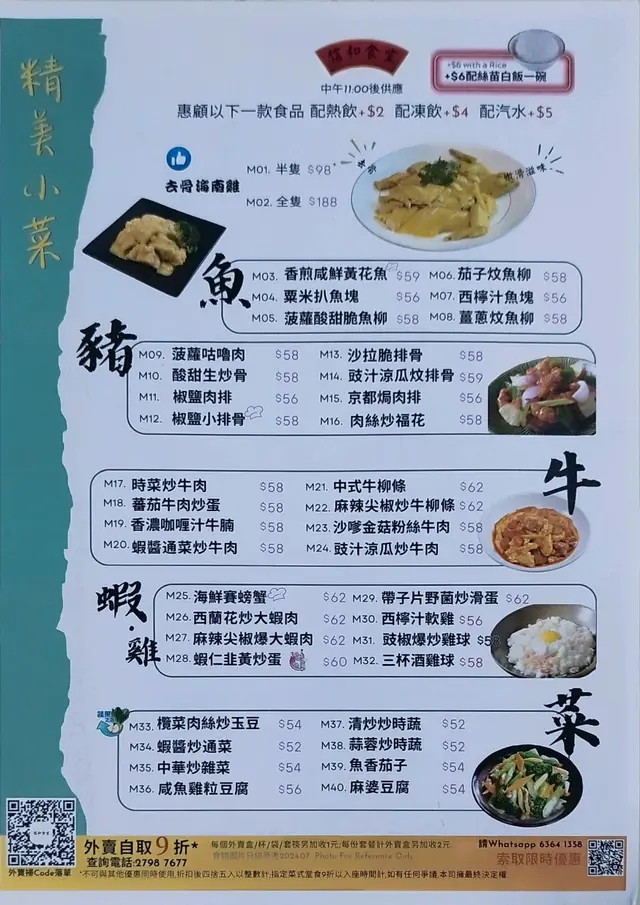 精美小菜
信和食堂
+$6 with a Rice
+$6配絲苗白飯一碗
中午11:00後供應
惠顧以下一款食品 配熱飲+$2 配凍飲+$4 配汽水+$5
去骨海南雞
M01. 半隻 $98*
M02. 全隻 $188
嫩滑滋味
魚
M03. 香煎咸鮮黃花魚 $59
M04. 粟米扒魚塊 $56
M05. 菠蘿酸甜脆魚柳 $58
M06. 茄子炆魚柳 $58
M07. 西檸汁魚塊 $56
M08. 薑蔥炆魚柳 $58
豬
M09. 菠蘿咕嚕肉 $58
M10. 酸甜生炒骨 $58
M11. 椒鹽肉排 $56
M12. 椒鹽小排骨 $58
M13. 沙拉脆排骨 $58
M14. 豉汁涼瓜炆排骨 $59
M15. 京都焗肉排 $56
M16. 肉絲炒福花 $58
牛
M17. 時菜炒牛肉 $58
M18. 蕃茄牛肉炒蛋 $58
M19. 香濃咖喱汁牛腩 $58
M20. 蝦醬通菜炒牛肉 $58
M21. 中式牛柳條 $62
M22. 麻辣尖椒炒牛柳條 $62
M23. 沙嗲金菇粉絲牛肉 $58
M24. 豉汁涼瓜炒牛肉 $58
蝦·雞
M25. 海鮮賽螃蟹 $62
M26. 西蘭花炒大蝦肉 $62
M27. 麻辣尖椒爆大蝦肉 $62
M28. 蝦仁韭黃炒蛋 $60
M29. 帶子片野菌炒滑蛋 $62
M30. 西檸汁軟雞 $56
M31. 豉椒爆炒雞球 $58
M32. 三杯酒雞球 $58
菜
M33. 欖菜肉絲炒玉豆 $54
M34. 蝦醬炒通菜 $52
M35. 中華炒雜菜 $54
M36. 咸魚雞粒豆腐 $56
M37. 清炒炒時蔬 $52
M38. 蒜蓉炒時蔬 $52
M39. 魚香茄子 $54
M40. 麻婆豆腐 $54
外賣掃Code落單
外賣自取9折*
查詢電話:2798 7677
每個外賣盒/杯/袋/套筷另加收1元,每份套餐計外賣盒另加收2元.
食物圖片只供參考202407 Photo For Reference Only
請Whatsapp 6364 1358
索取限時優惠
*不可與其他優惠同時使用,折扣後四捨五入以整數計,指定菜式堂食9折以入座時間計,如有任何爭議,本司擁最終決定權.